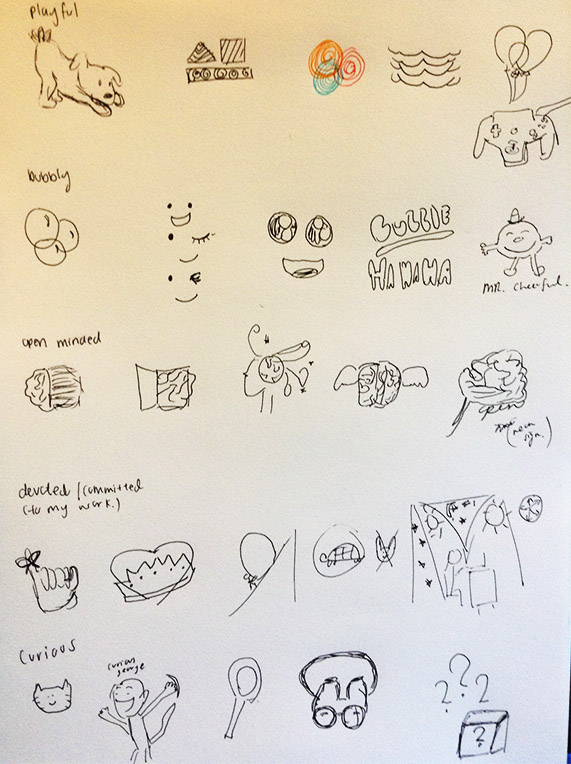 playful
bubbly
BUBBLE
HAHAHA
MR. Cheerful.
open minded
open
(neon
sign.)
devoted/committed
(to my work.)
curious
curious
george
? ? ?
?